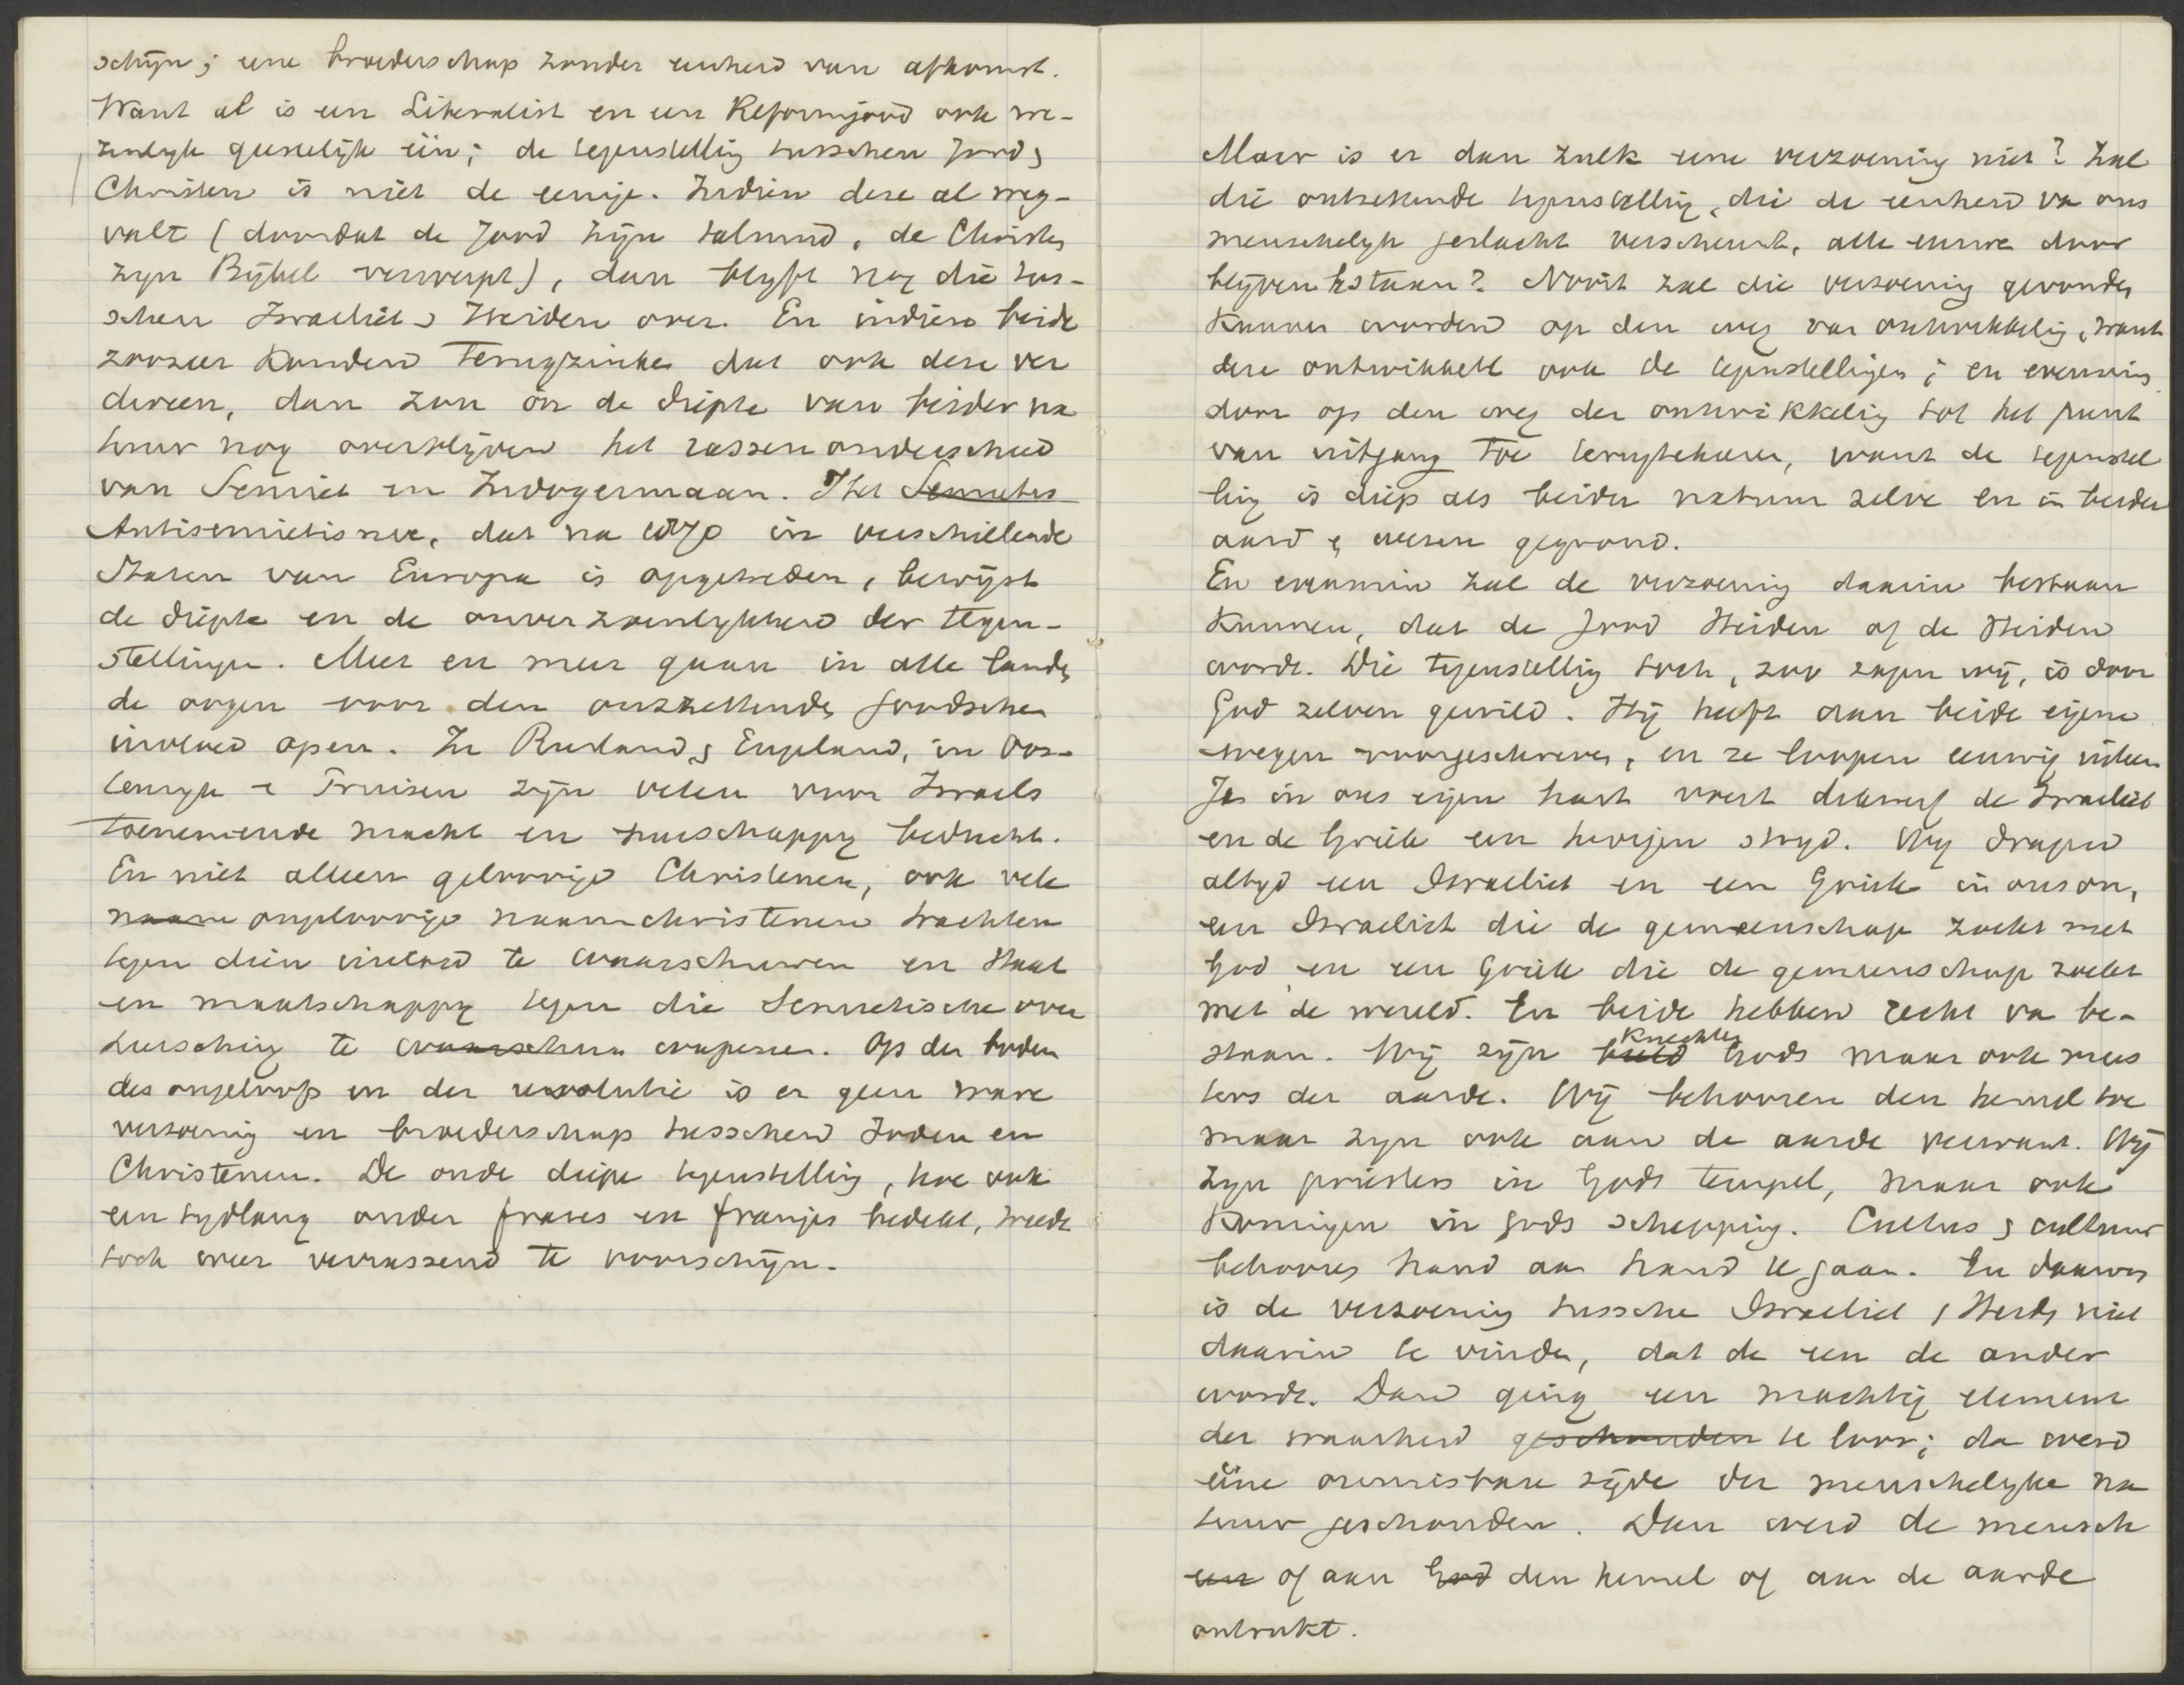 schijn; eene broederschap zonder eenheid van afkomst.
Want al is een Liberalist en een Reformjood ook we-
zenlyk geestelijk één; de tegenstelling tusschen Jood &
Christen is niet de eenige. Indien deze al weg-
valt (doordat de Jood zijn talmud, de Christen
zyn Bijbel verwerpt), dan blyft nog die tus-
schen Israeliet & Heiden over. En indien beide
zoozeer konden terugzinken dat ook deze ver
dween, dan zou in de diepte van beider na
tuur nog overblijven het rassenonderscheid
van Semiet en Indogermaan. Het Semietis
Antisemietisme, dat na 1870 in verschillende
Staten van Europa is opgetreden, bewijst
de diepte en de onverzoenlykheid der tegen-
stellingen. Meer en meer gaan in alle landen
de oogen voor den ontzettenden joodschen
invloed open. In Rusland & Engeland, in Oos-
tenryk & Pruisen zijn velen voor Israels
toenemende macht en heerschappy beducht.
En niet alleen geloovige Christenen, ook vele
naam ongeloovige naamchristenen trachten
tegen dien invloed te waarschuwen en Staat
en maatschappy tegen die Semietische over
heersching te waarschuw wapenen. Op den bodem
des ongeloofs en der revolutie is er geen ware
verzoening en broederschap tusschen Joden en
Christenen. De oude diepe tegenstelling, hoe ook
een tydlang onder frases en franjes bedekt, treedt
toch weer verrassend te voorschijn.
Maar is er dan zulk eene verzoening niet? Zal
die ontzettende tegenstelling, die de eenheid va ons
menschelyk geslacht verscheurt, alle eeuwen door
blijven bestaan? Nooit zal die verzoening gevonden
kunnen worden op den weg van ontwikkeling, want
deze ontwikkelt ook de tegenstellingen; en evenmin
door op den weg der ontwikkeling tot het punt
van uitgang toe terugtekeeren, want de tegenstel
ling is diep als beider natuur zelve en in beider
aard & wezen gegrond.
En evenmin zal de verzoening daarin bestaan
kunnen, dat de Jood Heiden of de Heiden
worde. Die tegenstelling toch, zoo zagen wij, is door
God zelven gewild. Hij heeft aan beide eigene
wegen voorgeschreven, en ze loopen eeuwig uiteen
Ja in ons eigen hart voert dikwerf de Israeliet
en de Griek een hevigen stryd. Wy dragen
altyd een Israeliet en een Griek in ons om,
een Israeliet die de gemeenschap zoekt met
God en een Griek die de gemeenschap zoekt
met de wereld. En beide hebben recht va be-
staan. Wij zijn beeld Knechten Gods maar ook mees
ters der aarde. Wij behooren den hemel toe
maar zyn ook aan de aarde verwant. Wij
zyn priesters in Gods tempel, maar ook
Koningen in Gods schepping. Cultus & cultuur
behooren hand aan hand te gaan. En daarom
is de verzoening tussche Israeliet & Heiden niet
daarin te vinden, dat de een de ander
worde. Dan ging een machtig element
der waarheid geschonden te loor; dan werd
eéne onmisbare zijde der menschelyke na
tuur geschonden. Dan werd de mensch
een of aan God den hemel of aan de aarde
ontrukt.